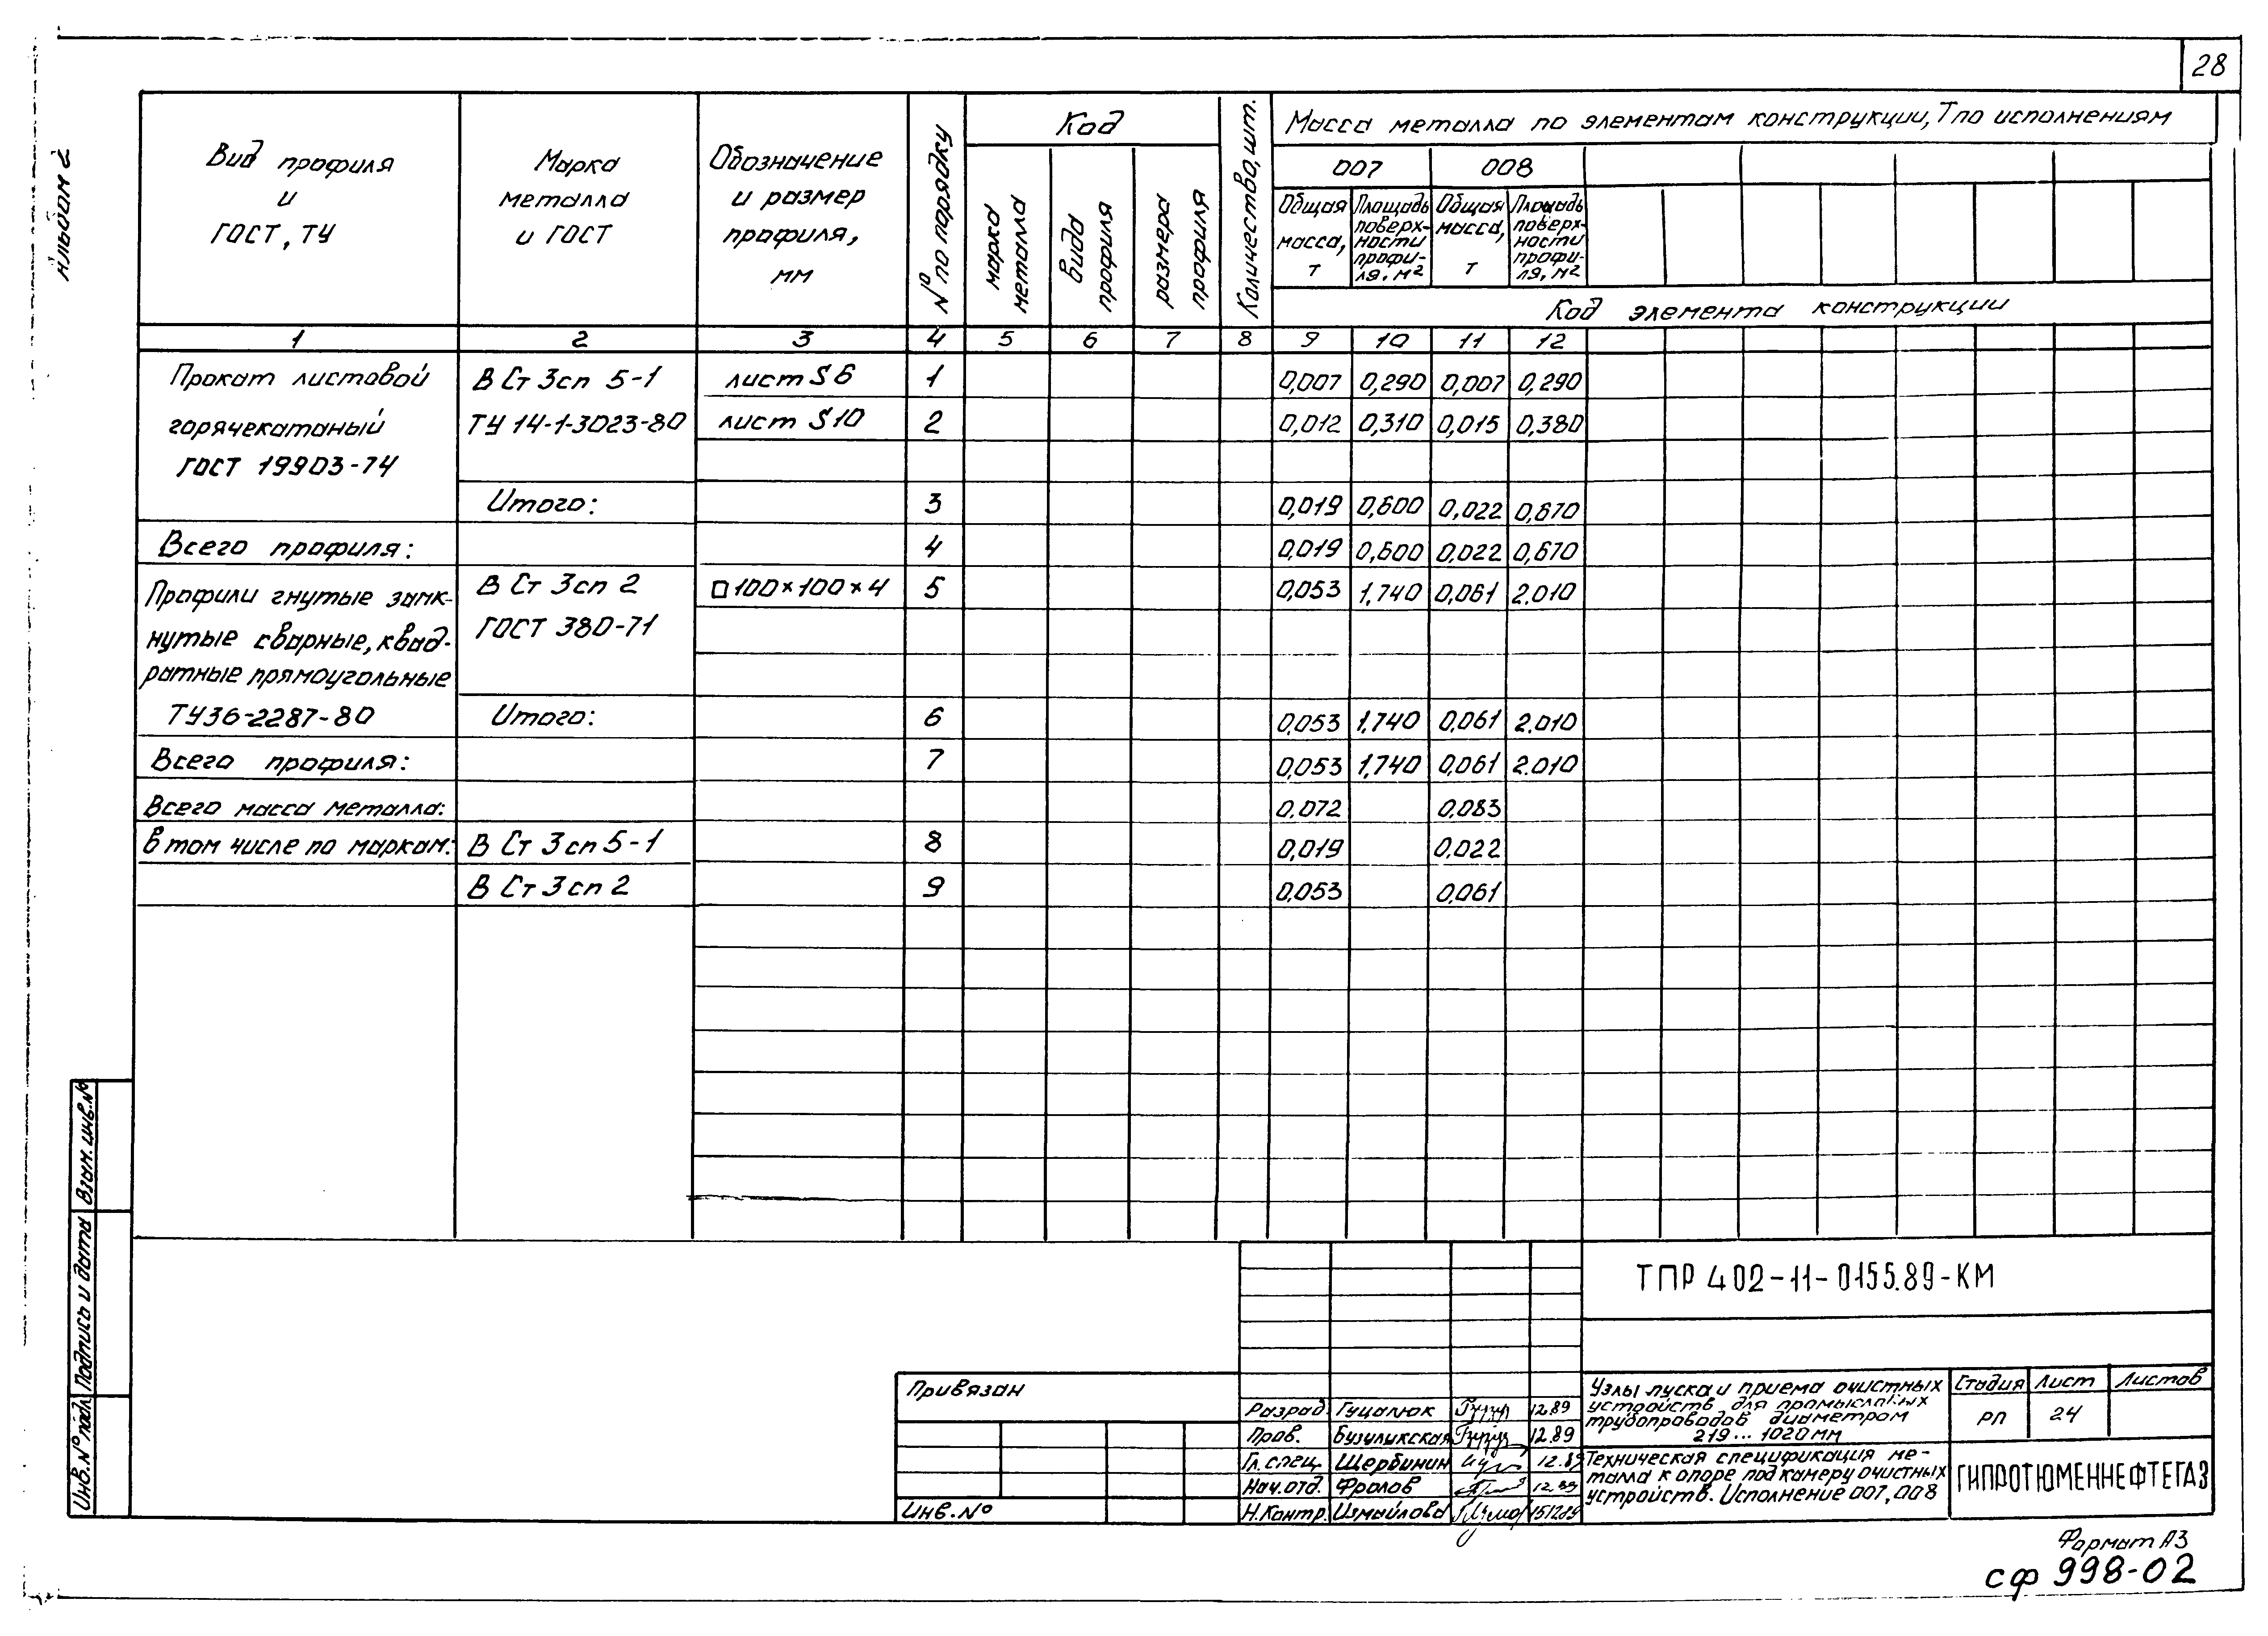 28
Альбом 2
Вид профиля и ГОСТ, ТУ
Марка металла и ГОСТ
Обозначение и размер профиля, мм
№ по порядку
Код
марка металла
вида профиля
размера профиля
Количество, шт.
Масса металла по элементам конструкции, Т по исполнениям
007 008
Общая масса, т
Площадь поверхности профиля, м²
Общая масса, т
Площадь поверхности профиля, м²
Код элемента конструкции
1 2 3 4 5 6 7 8 9 10 11 12
Прокат листовой В Ст 3сп 5-1 лист S6 1 0,007 0,290 0,007 0,290
горячекатаный ТУ 14-1-3023-80 лист S10 2 0,012 0,310 0,015 0,380
ГОСТ 19903-74
Итого: 3 0,019 0,600 0,022 0,670
Всего профиля: 4 0,019 0,600 0,022 0,670
Профили гнутые замк- В Ст 3сп 2 □100×100×4 5 0,053 1,740 0,061 2.010
нутые сварные, квад- ГОСТ 380-71
ратные прямоугольные
ТУ36-2287-80 Итого: 6 0,053 1,740 0,061 2.010
Всего профиля: 7 0,053 1,740 0,061 2.010
Всего масса металла: 0,072 0,083
в том числе по маркам: В Ст 3сп 5-1 8 0,019 0,022
В Ст 3сп 2 9 0,053 0,061
Взам. инв.№
Подпись и дата
Инв.№ подл
ТПР 402-11-0155.89-КМ
Привязан
Инв.№
Разраб. Гуцалюк 12.89
Пров. Бузулукская 12.89
Гл. спец. Щербинин 12.89
Нач.отд. Фролов 12.89
Н.Контр. Измайлова 151289
Узлы пуска и приема очистных
устройств для промысловых
трубопроводов диаметром
219...1020 мм
Стадия Лист Листов
РП 24
Техническая спецификация ме-
талла к опоре под камеру очистных
устройств. Исполнение 007, 008
ГИПРОТЮМЕННЕФТЕГАЗ
Формат А3
сф 998-02